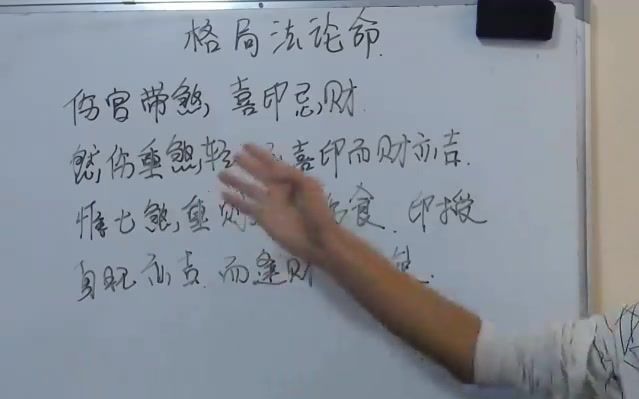 格局法论命
伤官带煞,喜印忌财.
然,伤重煞,轻 喜印而财亦吉.
惟七煞,重财 食.印授
身旺亦吉.而逢财